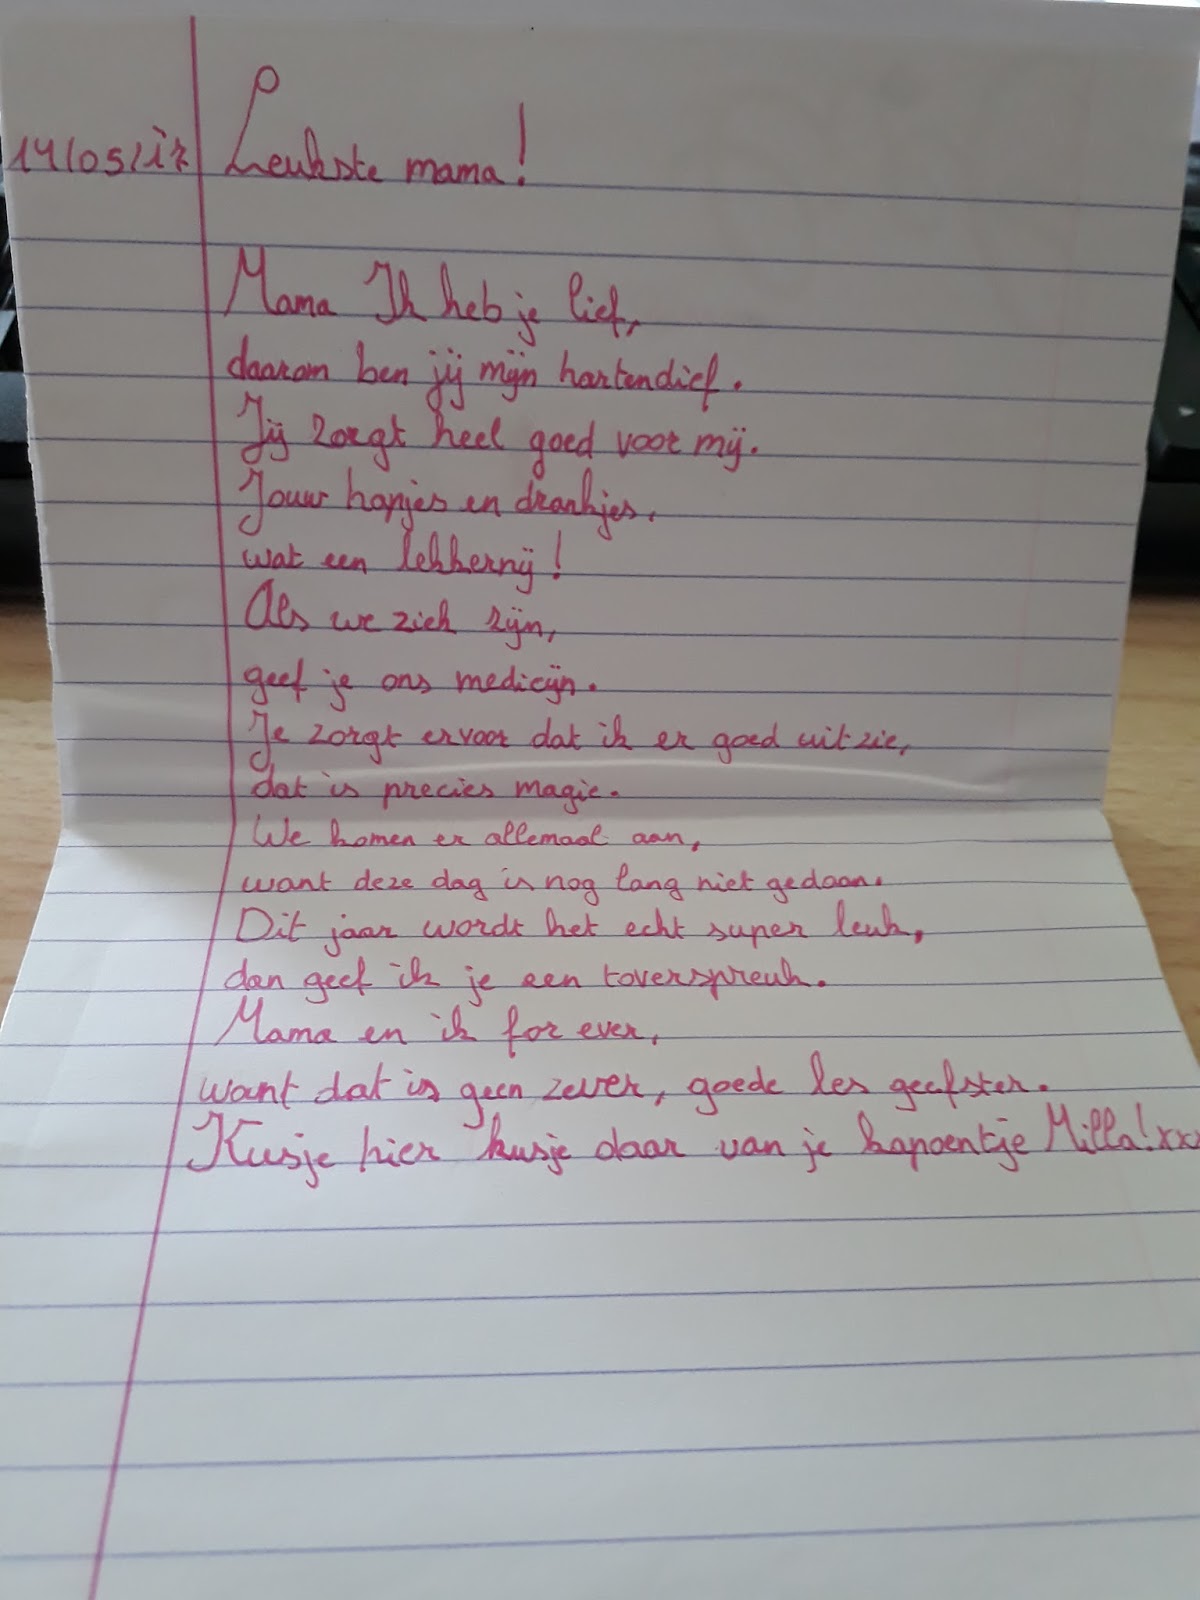 14/05/17 Leukste mama!
Mama Ik heb je lief,
daarom ben jij mijn hartendief.
Jij zorgt heel goed voor mij.
Jouw hapjes en drankjes,
wat een lekkernij!
Als we ziek zijn,
geef je ons medicijn.
Je zorgt ervoor dat ik er goed uit zie,
dat is precies magie.
We komen er allemaal aan,
want deze dag is nog lang niet gedaan.
Dit jaar wordt het echt super leuk,
dan geef ik je een toverspreuk.
Mama en ik for ever,
want dat is geen zever, goede les geefster.
Kusje hier kusje daar van je kapoentje Milla!xxx